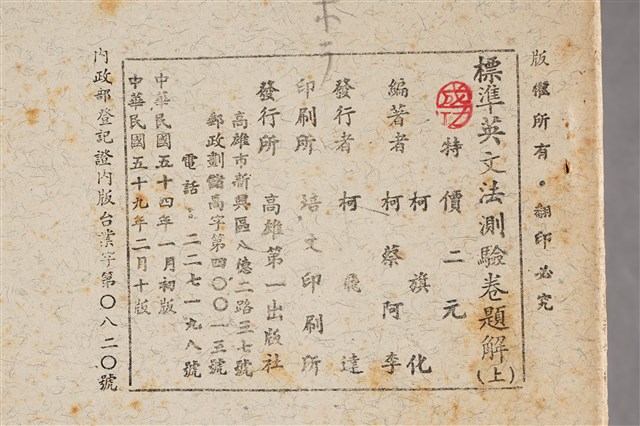 版權所有。翻印必究
標準英文法測驗卷題解(上)
成功
特價二元
編著者 柯旗化
柯蔡阿李
發行者 柯飛達
印刷所 培文印刷所
發行所 高雄第一出版社
高雄市新興區八德二路三七號
郵政劃儲高字第四〇〇一五號
電話。二二七一九八號
中華民國五十四年一月初版
中華民國五十九年二月十版
內政部登記證內版台業字第〇八二〇號